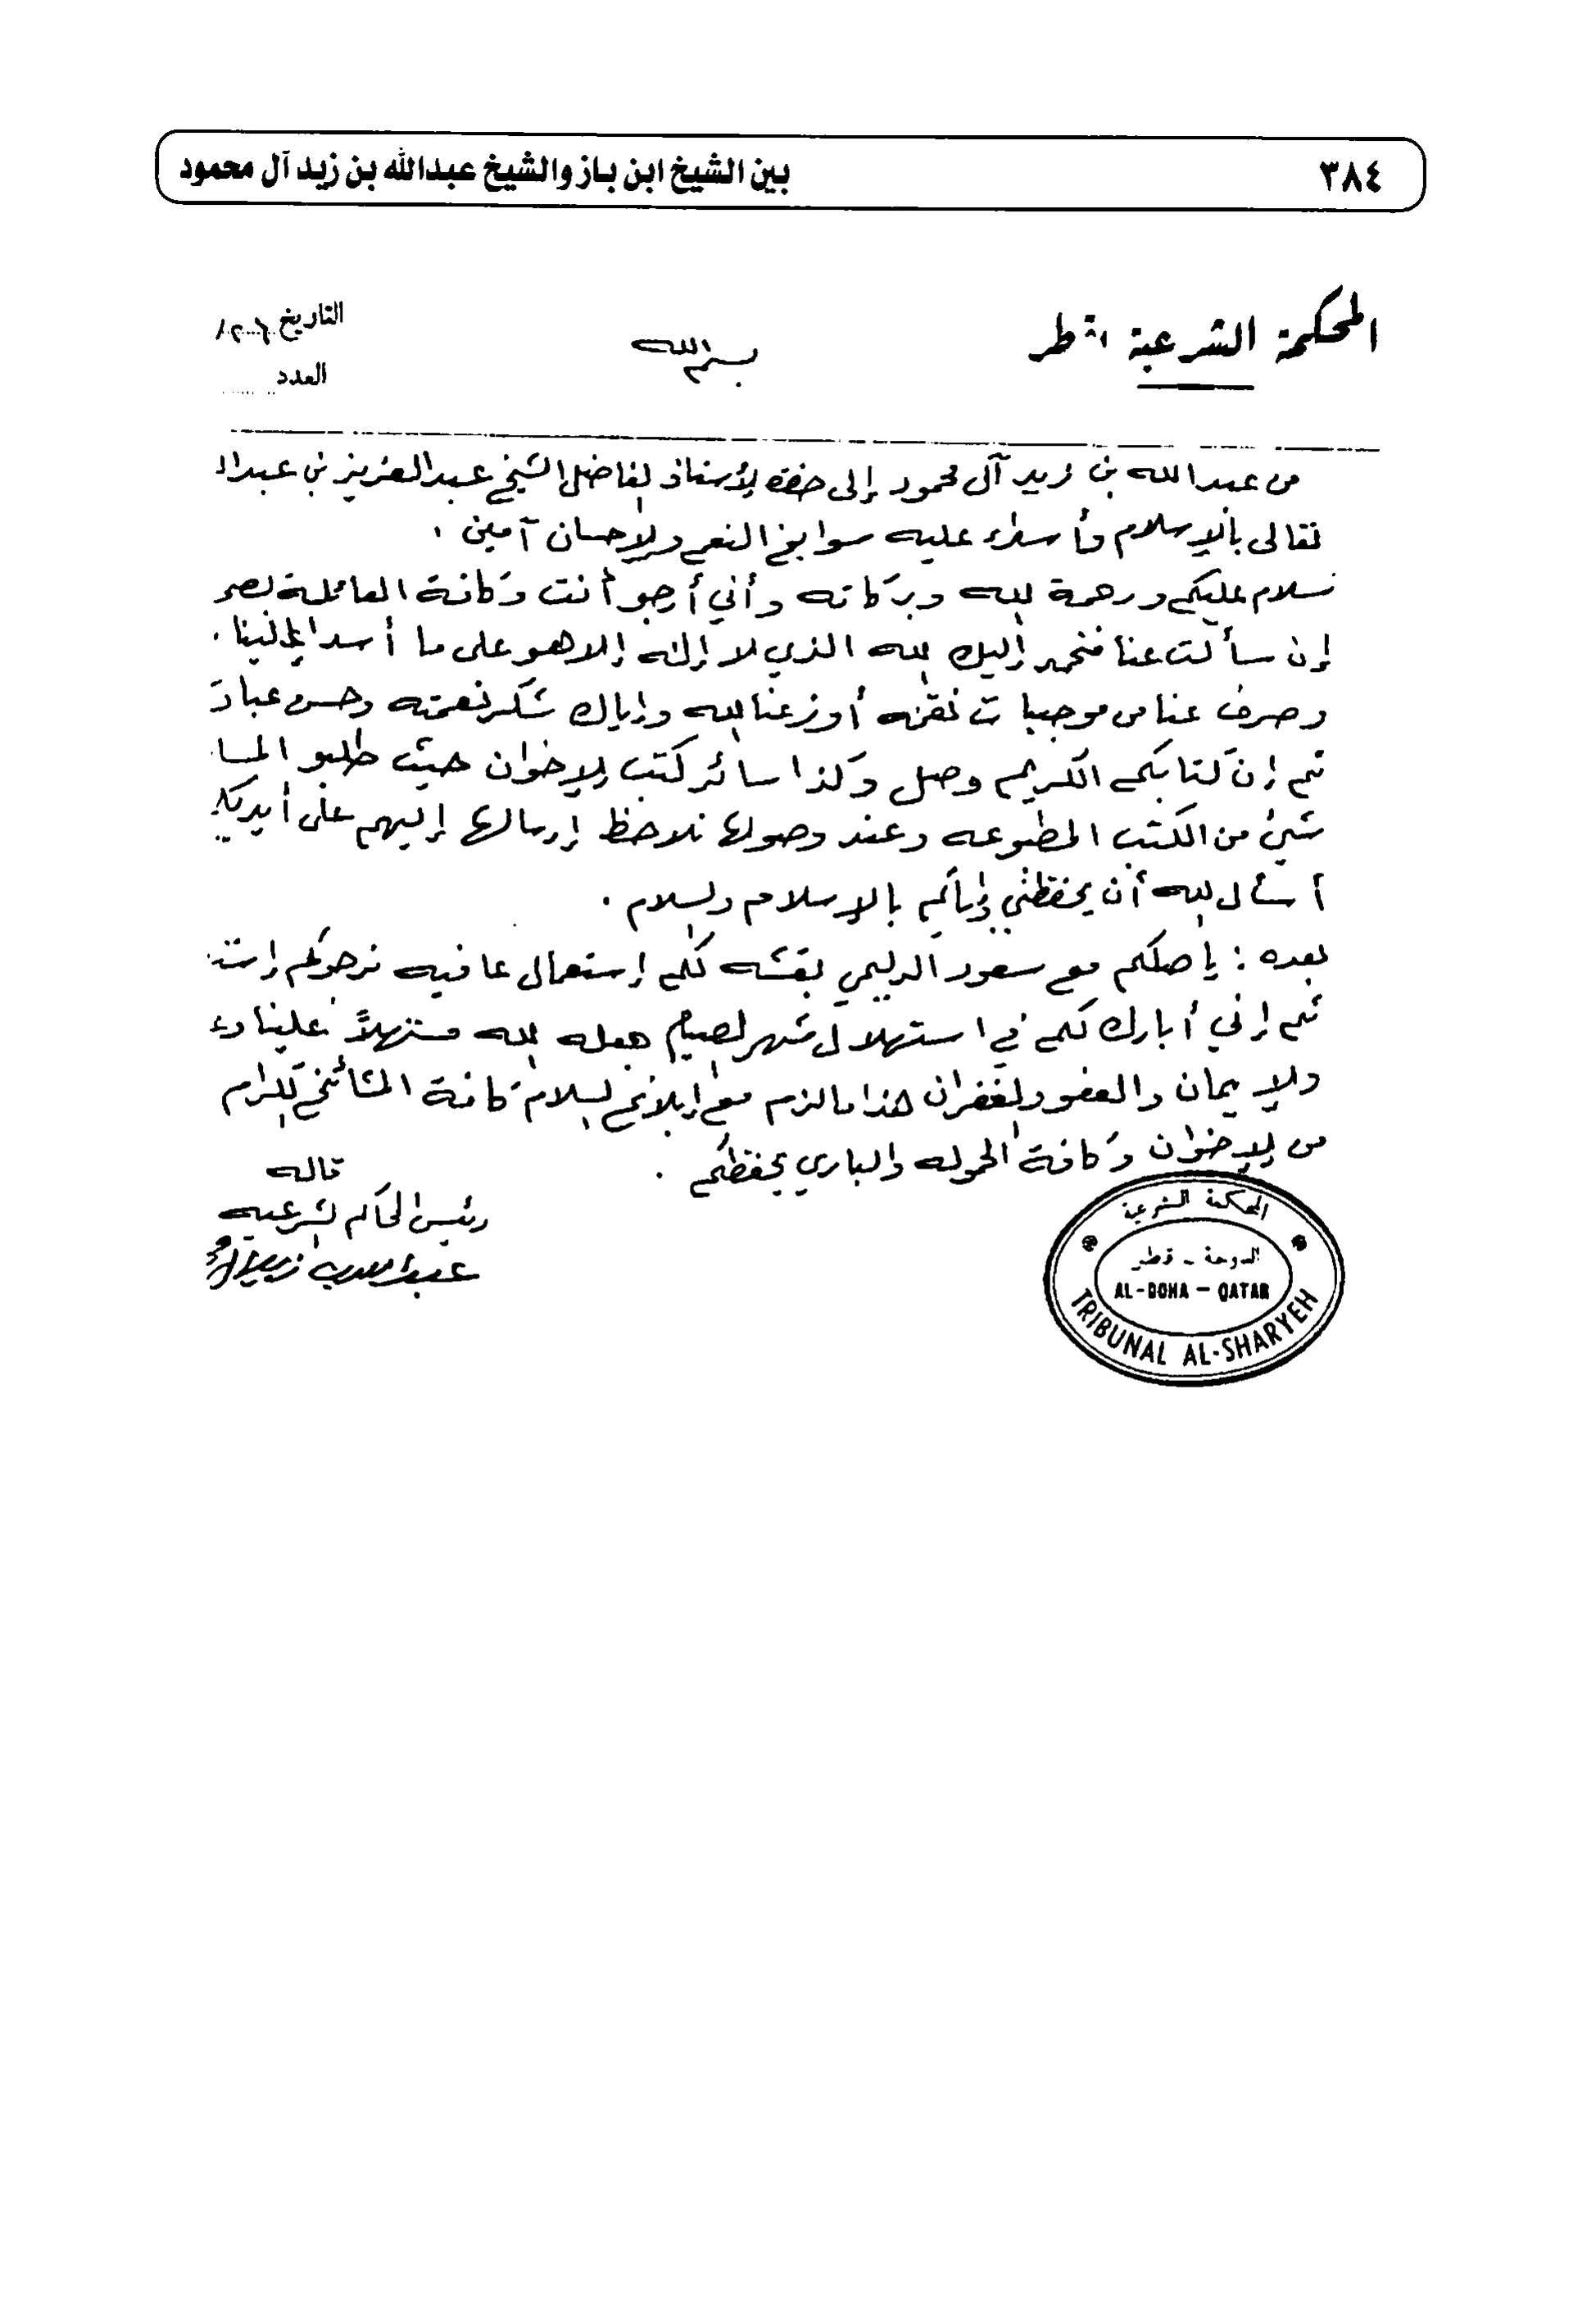 ٣٨٤
بين الشيخ ابن باز والشيخ عبدالله بن زيد آل محمود
المحكمة الشرعية بقطر
بسم الله
التاريخ
العدد
من عبد الله بن زيد آل محمود إلى حضرة الأستاذ الفاضل الشيخ عبد العزيز بن عبدالله
تعالى بالإسلام وأسداء عليه سوابغ النعم والإحسان آمين .
سلام عليكم ورحمة الله وبركاته وأني أرجو أنت وكافة العائلة
إن سألت عنا فنحمد إليك الله الذي لا إله إلا هو على ما أسداه إلينا .
وصرف عنا من موجبات نقمه أوزعنا الله وإياك شكر نعمته وحسن عباد
ثم إن كتابكم الكريم وصل وكذا سائر كتب الإخوان حيث طلبو المسا
شيئ من الكتب المطبوعه وعند وصولها نلاحظ إرسالها إليهم على أيديك
أسأل الله أن يحفظني وإياكم بالإسلام والسلام .
بعده : ياصلكم مع سعود الدليمي بقشه لكم إستعمال عافيه نرجوكم
ثم إني أبارك لكم في استهلال شهر الصيام جعله الله مستهلاً علينا
والإيمان والعفو والغفران هذا مالزم مع إبلاغ السلام كافة المشائخ الكرام
من الإخوان وكافة الحموله والباري يحفظكم .
قاله
رئيس المحاكم الشرعيه
عبدالله بن زيد آل
المحكمة الشرعية
الدوحة - قطر
AL-DOHA - QATAR
TRIBUNAL AL-SHARYEH